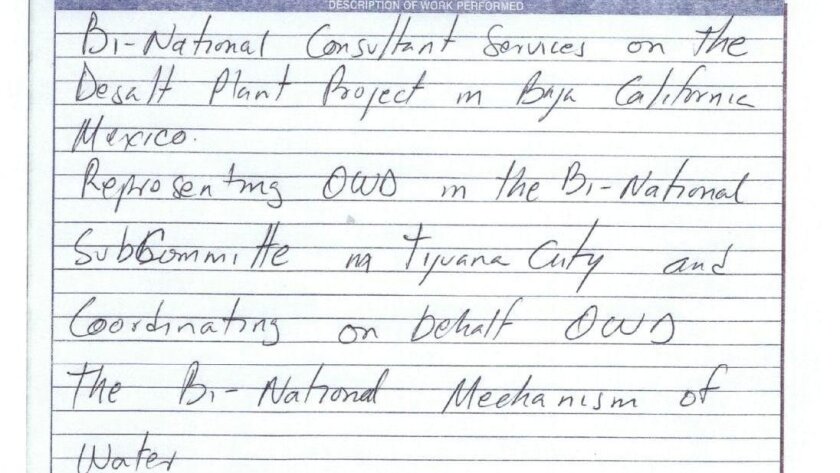 DESCRIPTION OF WORK PERFORMED
Bi-National Consultant Services on the
Desalt Plant Project in Baja California
Mexico.
Representing OWD in the Bi-National
SubCommitte in Tijuana City and
Coordinating on behalf OWD
the Bi-National Mechanism of
Water